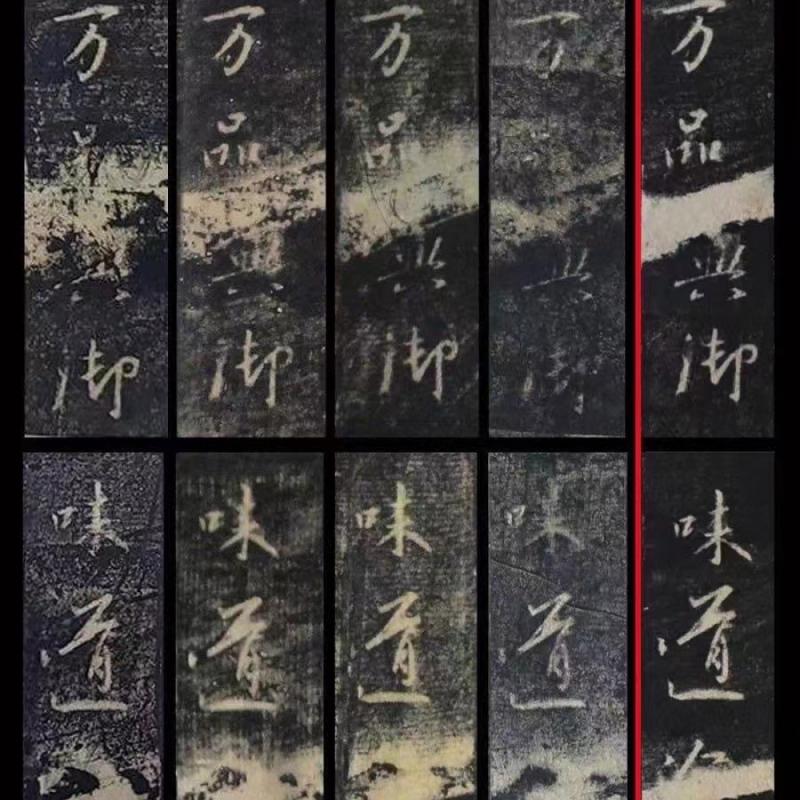 万品典御
万品典御
万品典御
万品典御
万品典御
味道
味道
味道
味道
味道